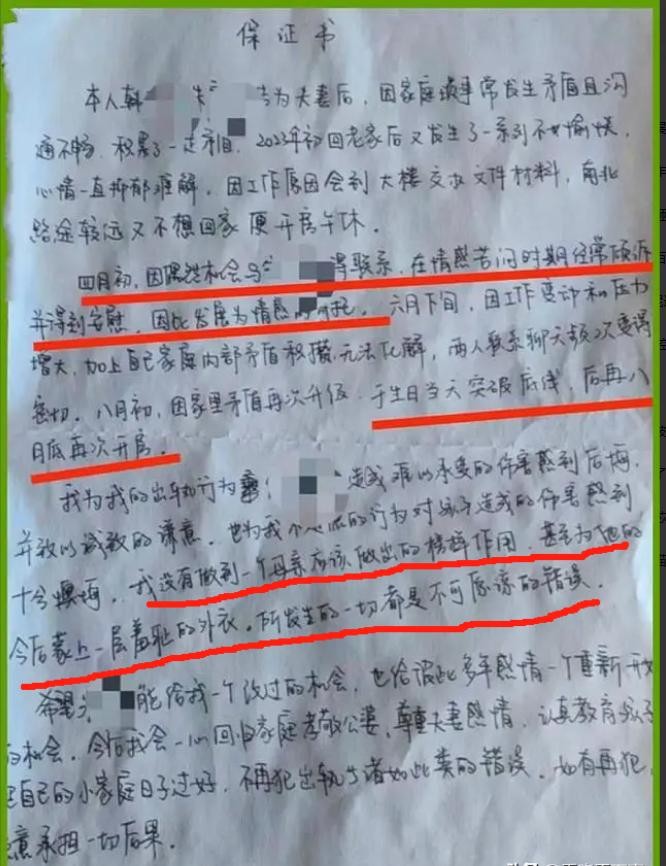 保证书
本人韩 为夫妻后，因家庭琐事常发生矛盾且沟
通不畅，积累了一定矛盾。2023年初回老家后又发生了一系列不愉快，
心情一直抑郁难解，因工作原因会到大楼交收文件材料，南北
路途较远又不想回家便开房午休。
四月初，因偶然机会与 得联系，在情感苦闷时期经常倾诉
并得到安慰，因此发展为情感的寄托。六月下旬，因工作变动和压力
增大，加上自己家庭内部矛盾积攒无法化解，两人联系聊天频次变得
密切。八月初，因家里矛盾再次升级，于生日当天突破底线，后再八
月底再次开房。
我为我的出轨行为 造成难以承受的伤害感到后悔，
并致以诚致的谦意。也为我个人 的行为对孩子造成的伤害感到
十分懊悔，我没有做到一个母亲应该做出的榜样作用，甚至为他的
今后蒙上一层羞耻的外衣。所发生的一切都是不可原谅的错误。
希望 能给我一个改过的机会，也给彼此多年感情一个重新开
的机会。今后我会一心回归家庭孝敬公婆，尊重夫妻感情，认真教育孩子
自己的小家庭日子过好，不再犯出轨 诸如此类的错误，如有再犯，
意承担一切后果。